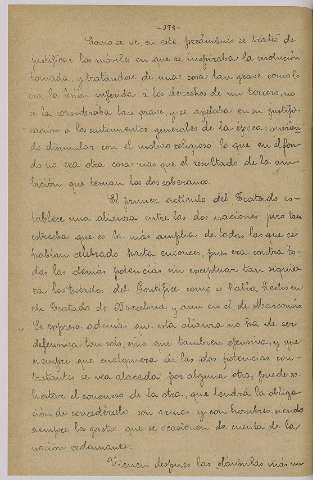 -374-
Como se ve en este preámbulo se trata de
justificar los móviles en que se inspiraba la resolución
tomada, y tratándose de una cosa tan grave como lo
era la lesión inferida a los derechos de un tercero, no
se la consideraba tan grave, y se apelaba en su justifi-
cación a los sentimientos generales de la época
de disimular con el motivo religioso lo que en el fon-
do no era otra cosa más que el resultado de la am-
bición que tenían los dos soberanos.
El primer artículo del Tratado es-
tablece una alianza entre las dos naciones pero tan
estrecha que es la más amplia de todas las que se
habían celebrado hasta entonces, pues era contra to-
das las demás potencias sin exceptuar tan siquie-
ra los Estados del Pontífice como se había hecho en
el Tratado de Barcelona y aun en el de Marcoussis
Se expresa además que esta alianza no ha de ser
defensiva tan solo sino que también ofensiva, y que
siempre que cualquiera de las dos potencias con-
tratantes se vea atacada por alguna otra, puede so-
licitar el concurso de la otra, que tendrá la obliga-
ción de concedérselo con armas y con hombres siendo
siempre los gastos que se ocasionen de cuenta de la
nación
Vienen después las cláusulas más im